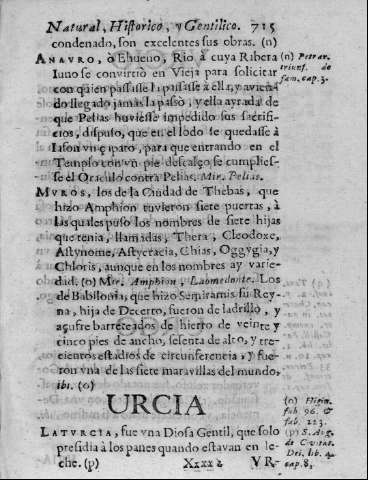 Natural, Historico, y Gentilico. 715
condenado, son excelentes sus obras. (n)
ANAURO, ò Ehueno, Rio à cuya Ribera
Iuno se convirtiò en Vieja para solicitar
con quien passasse la passasse à ella, y avien
do llegado jamas la passò, y ella ayrada de
que Pelias huviesse impedido sus sacrifi-
cios, dispuso, que en el lodo se quedasse à
Iason vn çapato, para que entrando en el
Templo con vn pie descalço se cumplies-
se el Oraculo contra Pelias. Mir. Pelias.
MVROS, los de la Ciudad de Thebas, que
hizo Amphion tuvieron siete puertas, à
las quales puso los nombres de siete hijas
que tenia, llamadas, Thera, Cleodoxe,
Astynome, Astycracia, Chias, Oggygia, y
Chloris, aunque en los nombres ay varie-
dad. (o) Mir. Amphion, Laomedonte. Los
de Babilonia, que hizo Semiramis su Rey-
na, hija de Decerto, fueron de ladrillo, y
açufre barreteados de hierro de veinte y
cinco pies de ancho, sesenta de alto, y tre-
cientos estadios de circunferencia, y fue-
ron vna de las siete maravillas del mundo,
ibi. (o)
URCIA
LATVRCIA, fue vna Diosa Gentil, que solo
presidia à los panes quando estavan en le-
che. (p) Xxxx 2 VR-
(n) Petrar.
triunf. de
fam. cap. 3.
(o) Higin.
fab. 96. &
fab. 223.
(p) S. Aug.
de Civitat.
Dei, lib. 4.
cap. 8.